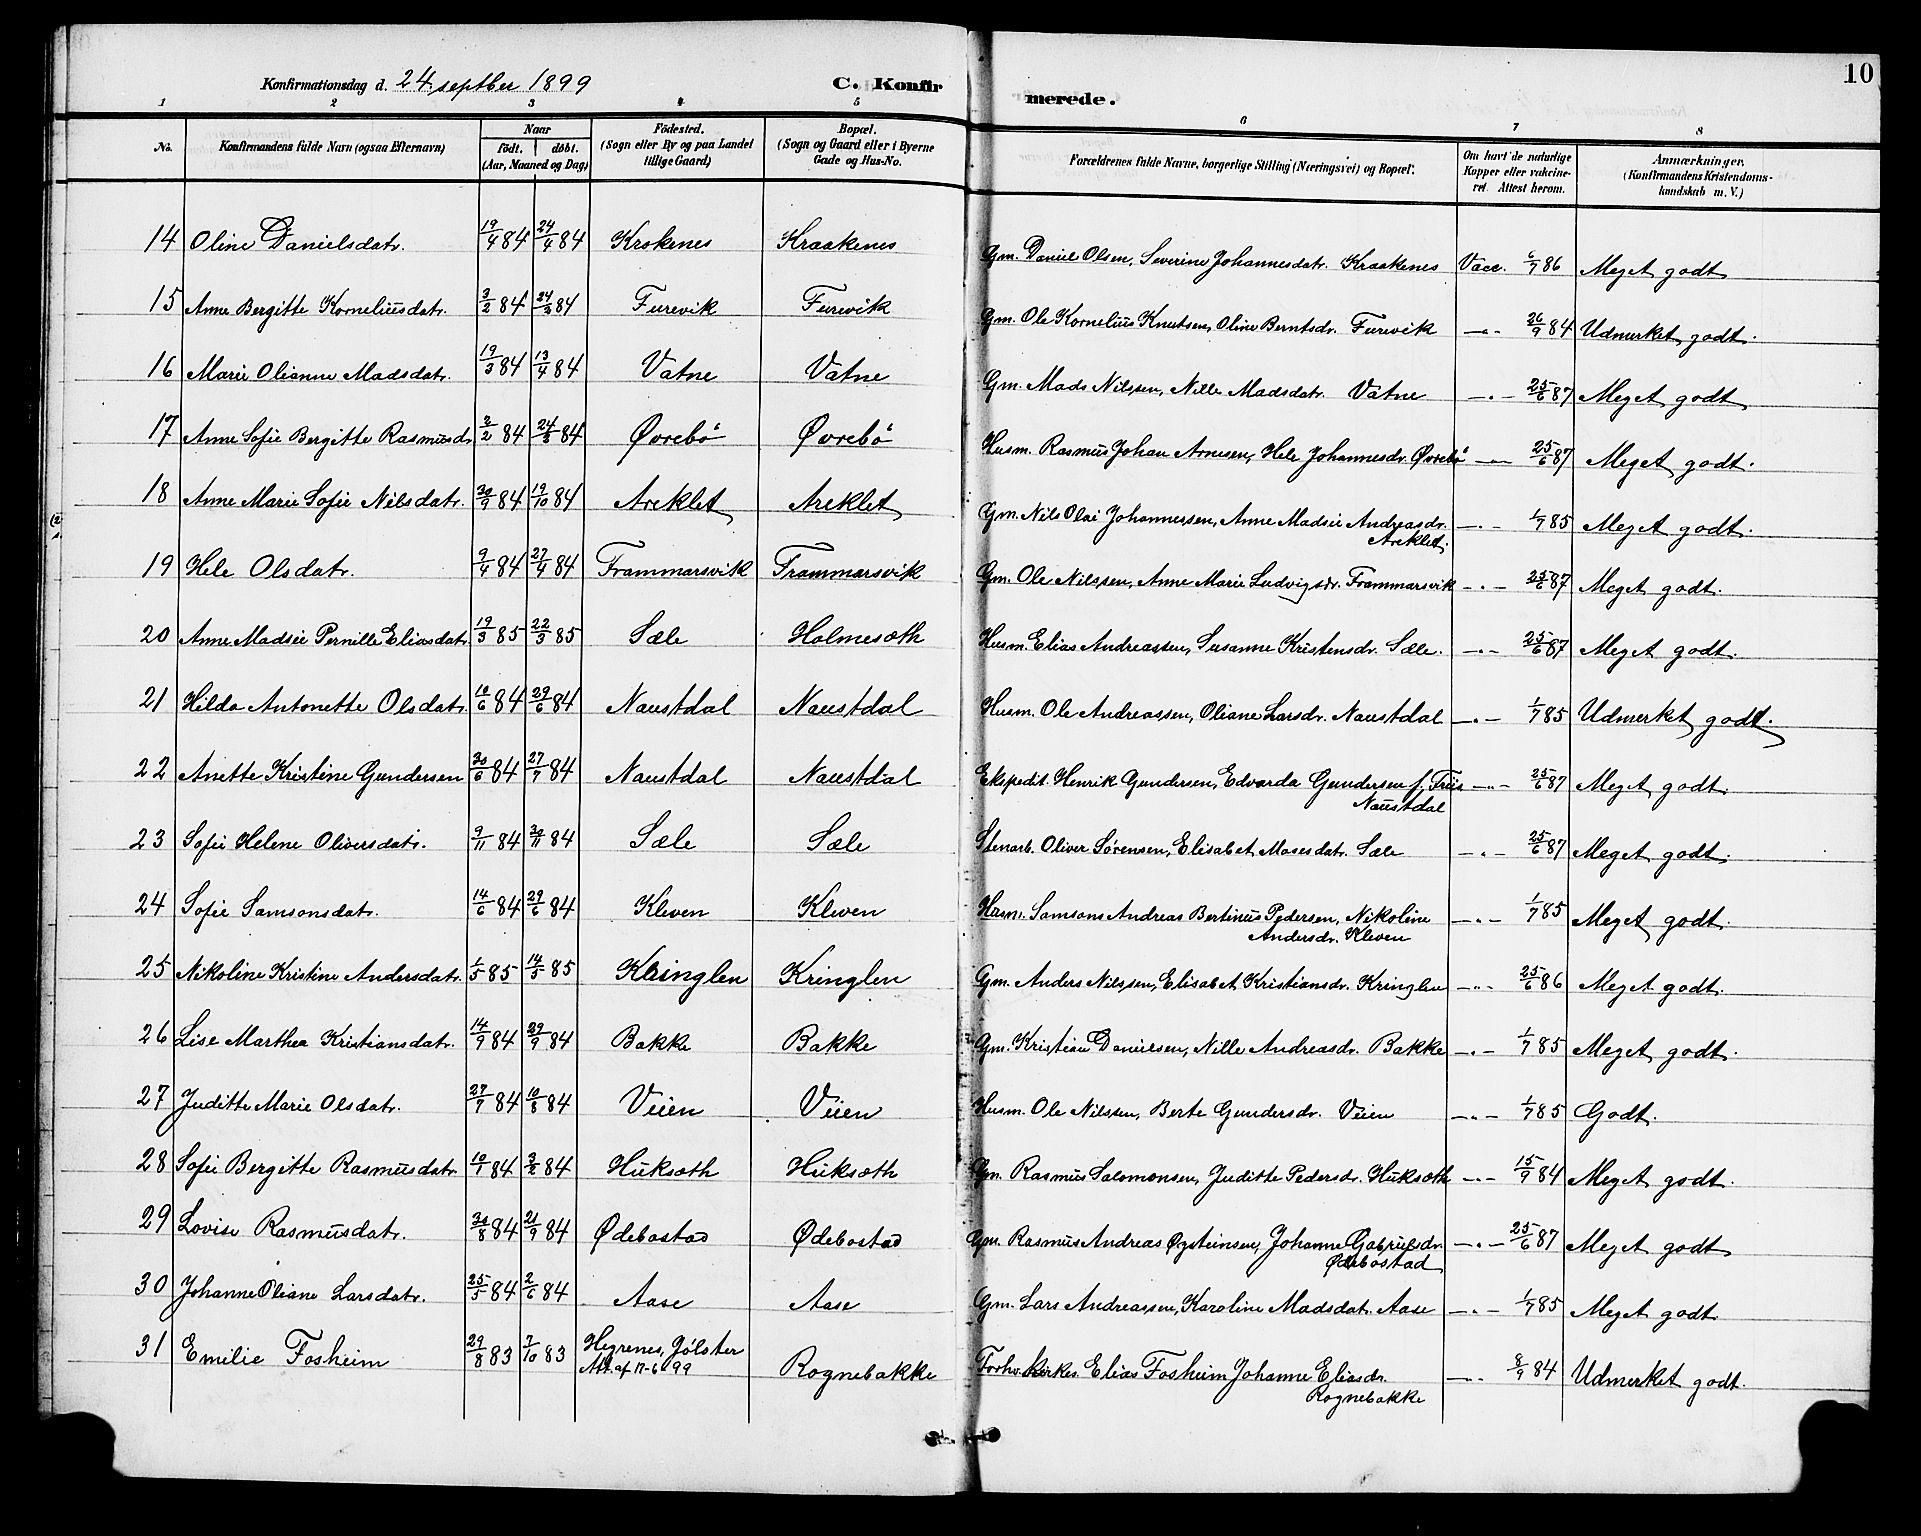 10
Konfirmationsdag d. 24. septber 1899 C. Konfirmerede.
1 2 3 4 5 6 7 8
No. Konfirmandens fulde Navn (ogsaa Efternavn) Naar födt. döbt. (Aar, Maaned og Dag) Födested. (Sogn eller By og paa Landet tillige Gaard) Bopæl. (Sogn og Gaard eller i Byerne Gade og Hus-No. Forældrenes fulde Navne, borgerlige Stilling (Næringsvei) og Bopæl. Om havt de naturlige Kopper eller vakcineret. Attest herom. Anmærkninger. (Konfirmandens Kristendomskundskab m. V.)
14 Oline Danielsdatr. 19/4 84 24/4 84 Krokenes Kraakenes Gm. Daniel Olsen, Severine Johannesdatr. Kraakenes Vacc. 6/7 86 Meget godt
15 Anne Bergitte Korneliusdatr. 3/2 84 24/2 84 Furevik Furevik Gm. Ole Kornelius Knutsen, Oline Berntsdr. Furevik —„— 26/9 84 Udmerket godt.
16 Marie Olianne Madsdatr. 19/3 84 13/4 84 Vatne Vatne Gm. Mads Nilssen, Nille Madsdatr. Vatne —„— 25/6 87 Meget godt
17 Anne Sofie Bergitte Rasmusdr. 2/2 84 24/3 84 Øvrebö Øvrebö Husm. Rasmus Johan Arnesen, Hele Johannesdr. Øvrebö —„— 25/6 87 Meget godt.
18 Anne Marie Sofie Nilsdatr. 30/9 84 19/10 84 Areklet Areklet Gm. Nils Olai Johannessen, Anne Madsie Andreasdr. —„— 1/7 85 Meget godt.
Areklet.
19 Hele Olsdatr. 9/4 84 27/4 84 Frammarsvik Frammarsvik Gm. Ole Nilssen, Anne Marie Ludvigsdr. Frammarsvik —„— 25/6 87 Meget godt.
20 Anne Madsie Pernille Eliasdatr. 19/3 85 22/3 85 Sæle Holmesæth Husm. Elias Andreassen, Susanne Kristensdr. Sæle. —„— 25/6 87 Meget godt.
21 Hilda Antonette Olsdatr. 10/6 84 29/6 84 Naustdal Naustdal Husm. Ole Andreassen, Oliane Larsdr. Naustdal —„— 1/7 85 Udmerket godt.
22 Anette Kristine Gundersen 30/6 84 27/7 84 Naustdal Naustdal Ekspedit. Henrik Gundersen, Edvarda Gundersen f. Friis —„— 25/6 87 Meget godt.
Naustdal
23 Sofie Helene Oliversdatr. 9/11 84 30/11 84 Sæle Sæle Stenarb. Oliver Sørensen, Elisabet Mosesdatr. Sæle —„— 25/6 87 Meget godt.
24 Sofie Samsonsdatr. 14/6 84 29/6 84 Kleven Kleven Husm. Samsons Andreas Bertinus Pedersen, Nikoline —„— 1/7 85 Meget godt
Andersdr. Kleven
25 Nikoline Kristine Andersdatr. 1/5 85 14/5 85 Kringlen Kringlen Gm. Anders Nilssen, Elisabet Kristiansdr. Kringlen —„— 25/6 86 Meget godt.
26 Lise Marthea Kristiansdatr. 14/9 84 29/9 84 Bakke Bakke Gm. Kristian Danielsen, Nille Andreasdr. Bakke —„— 1/7 85 Meget godt.
27 Juditte Marie Olsdatr. 27/7 84 10/8 84 Veien Veien Husm. Ole Nilssen, Berte Gundersdr. Veien —„— 1/7 85 Godt.
28 Sofie Bergitte Rasmusdatr. 10/1 84 3/2 84 Huksæth Huksæth Gm. Rasmus Salomonsen, Juditte Pedersdr. Huksæth —„— 15/9 84 Meget godt.
29 Lovise Rasmusdatr. 30/8 84 21/9 84 Ødebostad Ødebostad Gm. Rasmus Andreas Øysteinsen, Johanne Gabrielsdr. —„— 25/6 87 Meget godt
Ødebostad
30 Johanne Oliane Larsdatr. 25/5 84 2/6 84 Aase Aase Gm. Lars Andreassen, Karoline Madsdatr. Aase —„— 1/7 85 Meget godt.
31 Emilie Fosheim 29/8 83 7/10 83 Hegrenes, Jölster Rognebakke Forhv. Kirkes. Elias Fosheim Johanne Eliasdr. —„— 8/9 84 Udmerket godt.
Att. af 17-6 99
Rognebakke